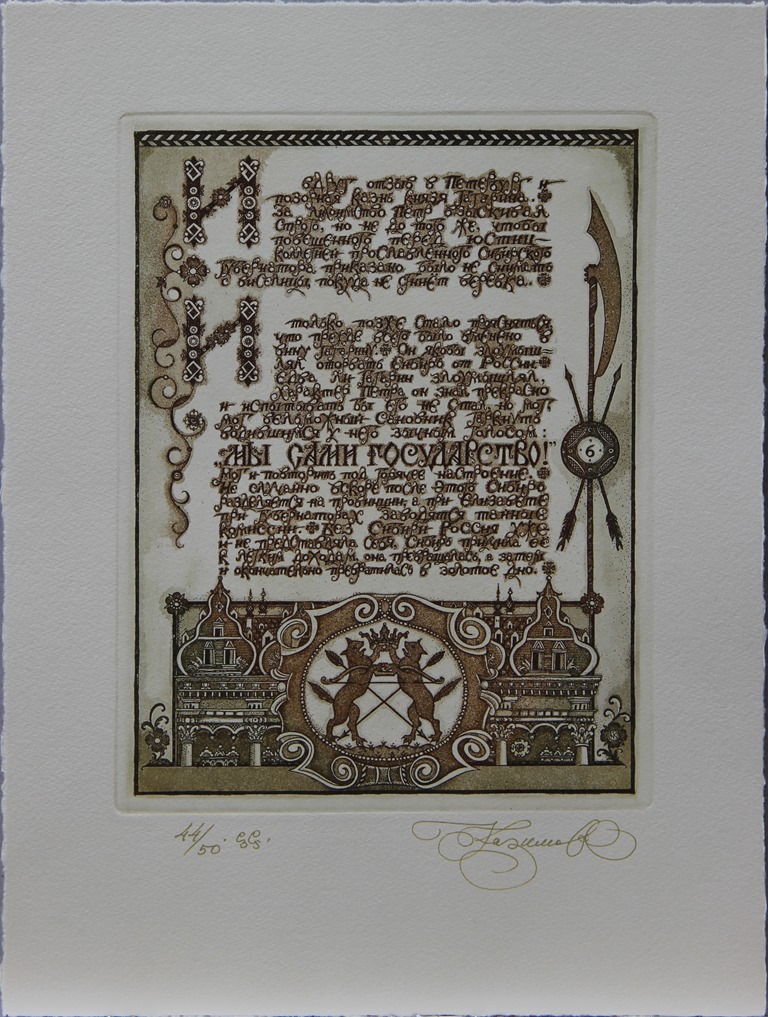 И вдруг отзыв в Петербург и
позорная казнь князя Гагарина..
за лихоимство Петр взыскивал
строго, но не до того же, чтобы
повешенного перед юстиц-
коллегией прославленного Сибирского
губернатора приказано было не снимать
с виселицы, покуда не сгниет веревка..
И только позже стало проясняться
что прежде всего было вменено в
вину Гагарину. Он якобы злоумыш=
лял оторвать Сибирь от России.
Едва ли Гагарин злоумышлял,
характер Петра он знал прекрасно
и испытывать бы его не стал, но мог,
мог вельможный сановник гаркнуть
водившимся у него зычным голосом:
„МЫ САМИ ГОСУДАРСТВО!"
Мог и повторить под горячее настроение.
Не случайно вскоре после этого Сибирь
разделяется на провинции, а при Елизавете
при губернаторах заводятся тайные
комиссии. Без Сибири Россия уже
и не представляла себя. Сибирь приучила её
к легким доходам, она превращалась, а затем
и окончательно превратилась в золотое дно.
6
44/50.